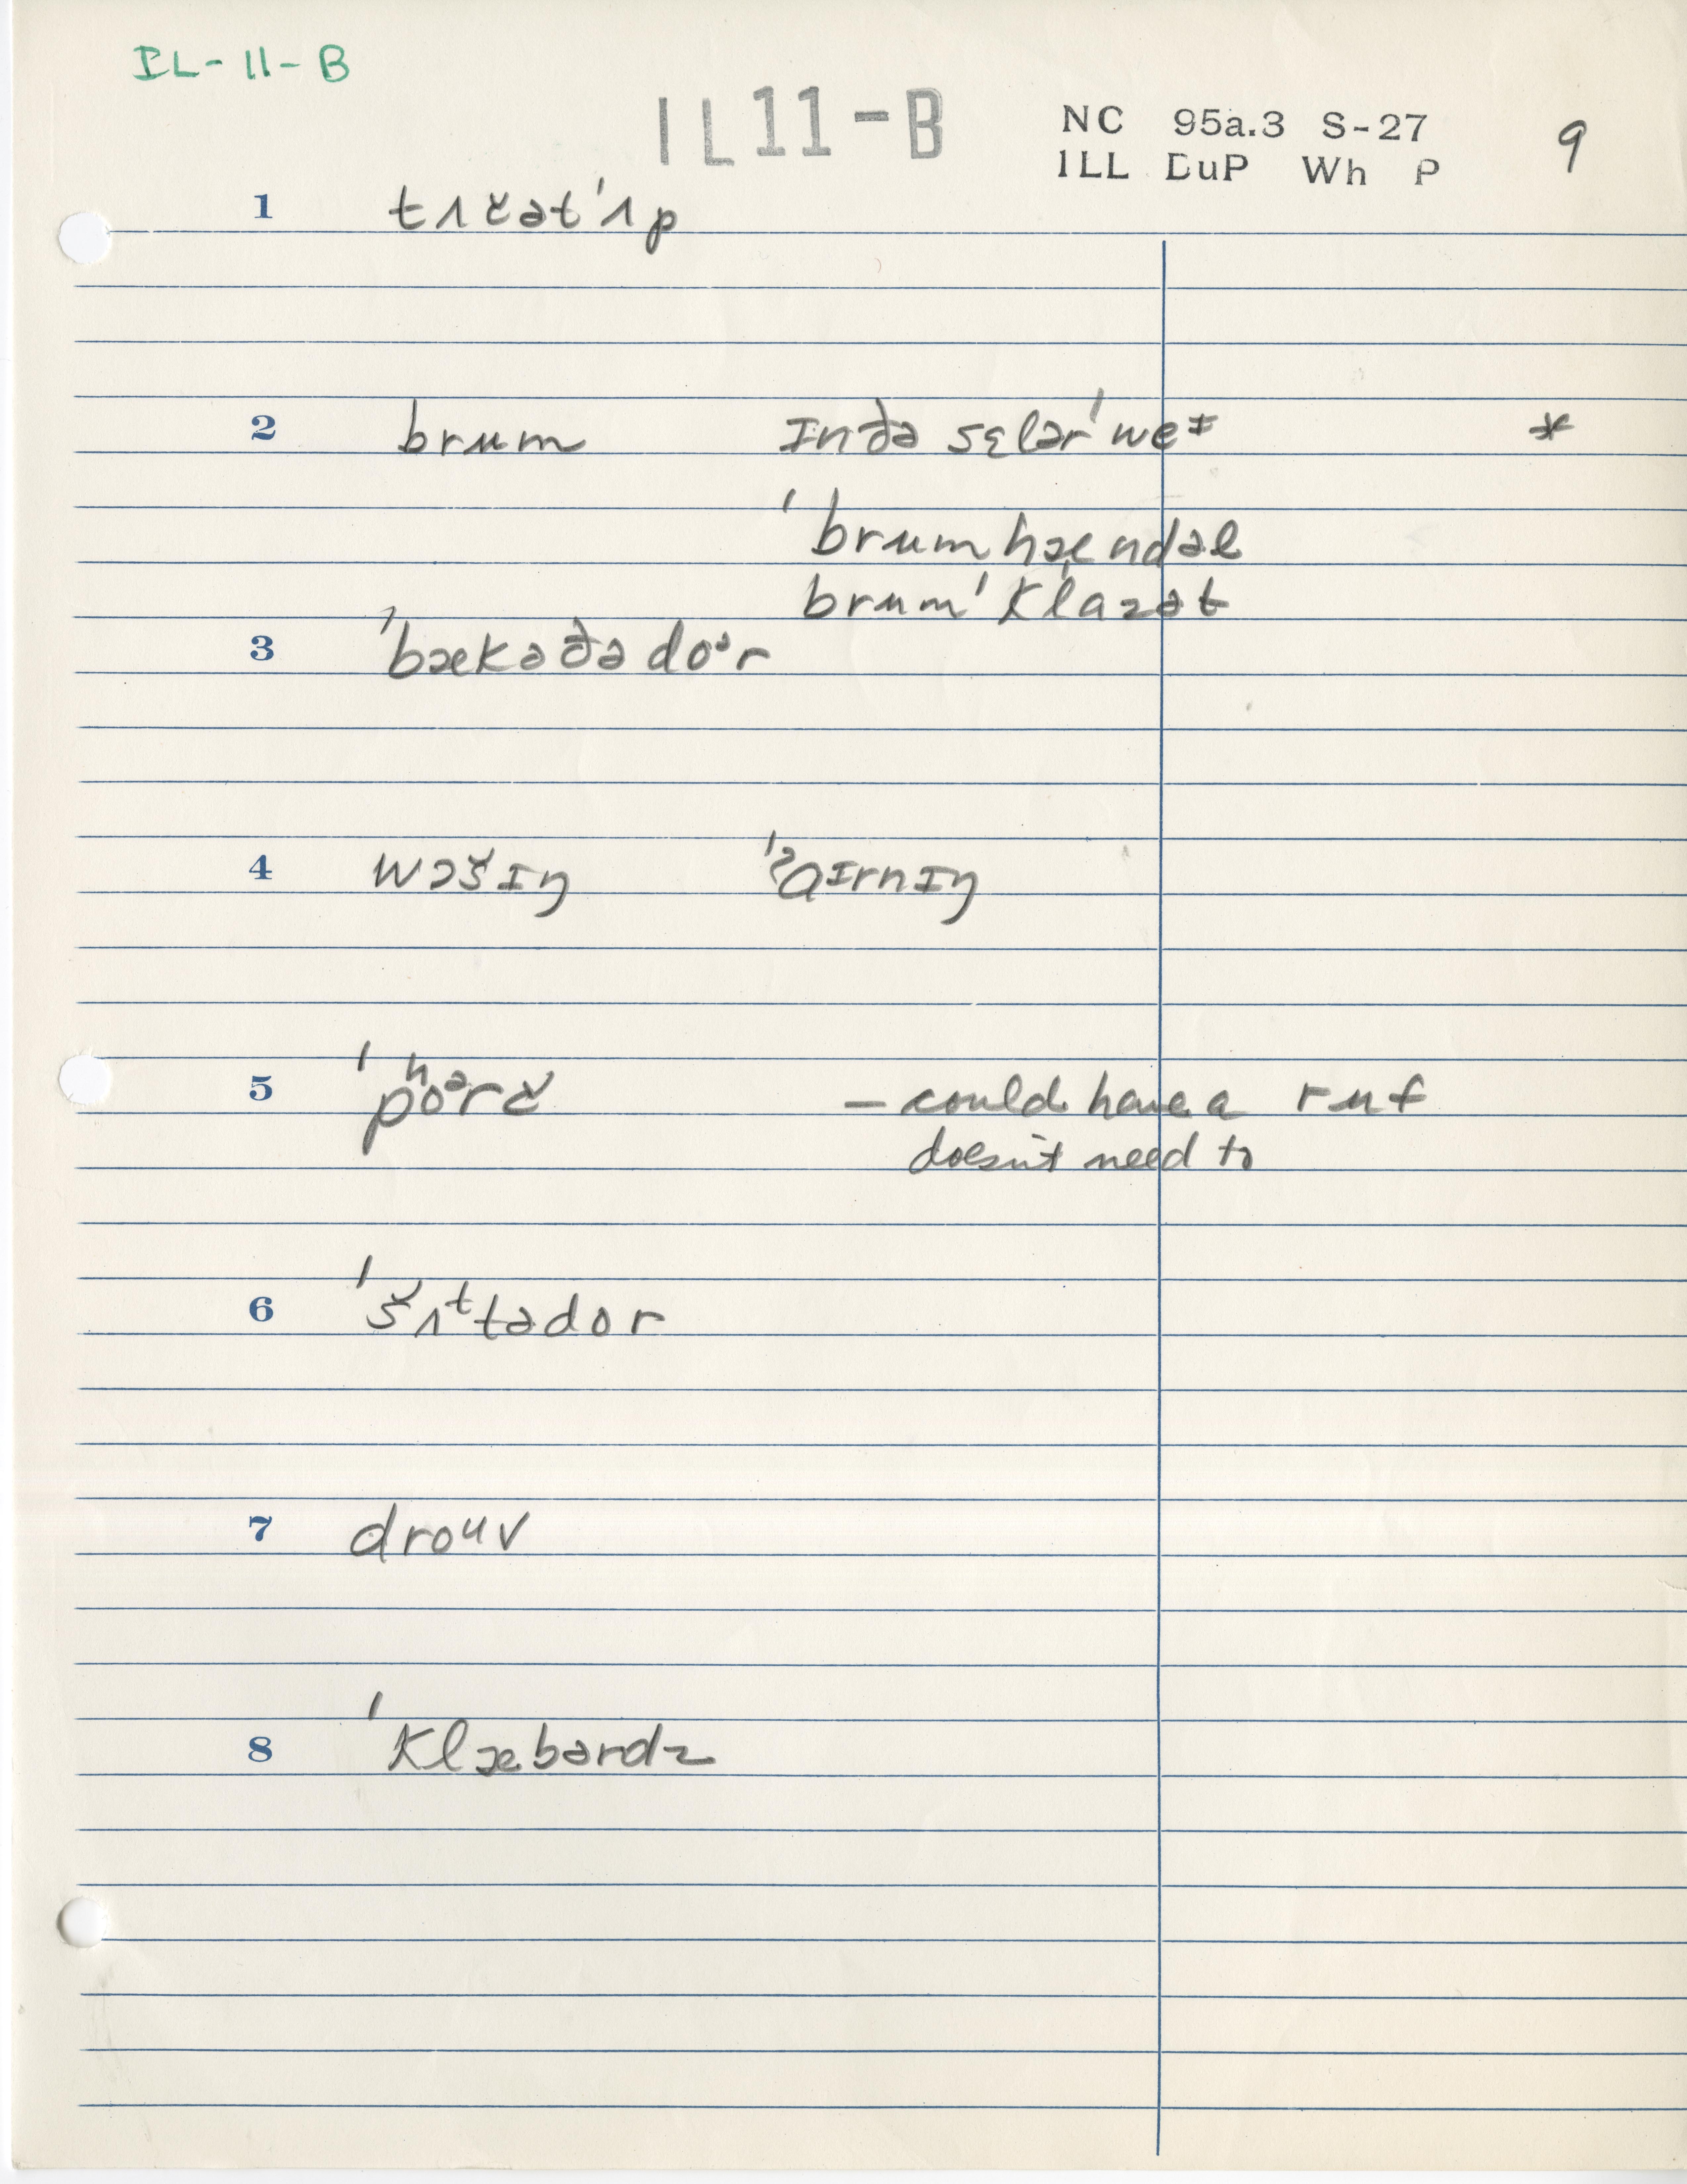 IL-11-B
IL11-B
NC 95a.3 S-27 9
ILL DuP Wh P
1 tʌčət'ʌp
2 brum ɪnðə sɛlər'we *
'brumhændəl
brum'klazət
3 'bækəðədoᵊr
4 wɔšɪŋ 'ʔaɪrnɪŋ
5 'pʰoᵊrč – could have a ruf
doesn't need to
6 'šʌᵗtədor
7 droᵘv
8 'klæbərdz